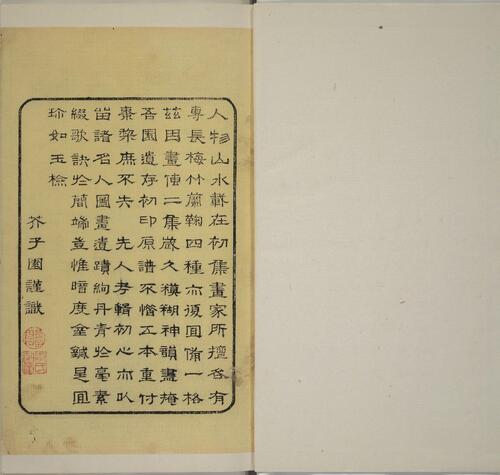 人物山水載在初集畫家所擅各有
專長梅竹蘭鞠四種亦復宜備一格
茲因畫傳二集歲久模糊神韻盡掩
吾園遺存初印原譜不惜工本重付
棗棃庶不失 先人考輯初心亦以
留諸名人圖畫遺蹟絢丹青於毫素
綴歌訣於簡端豈惟暗度金鍼是宜
珍如玉檢
芥子園謹識